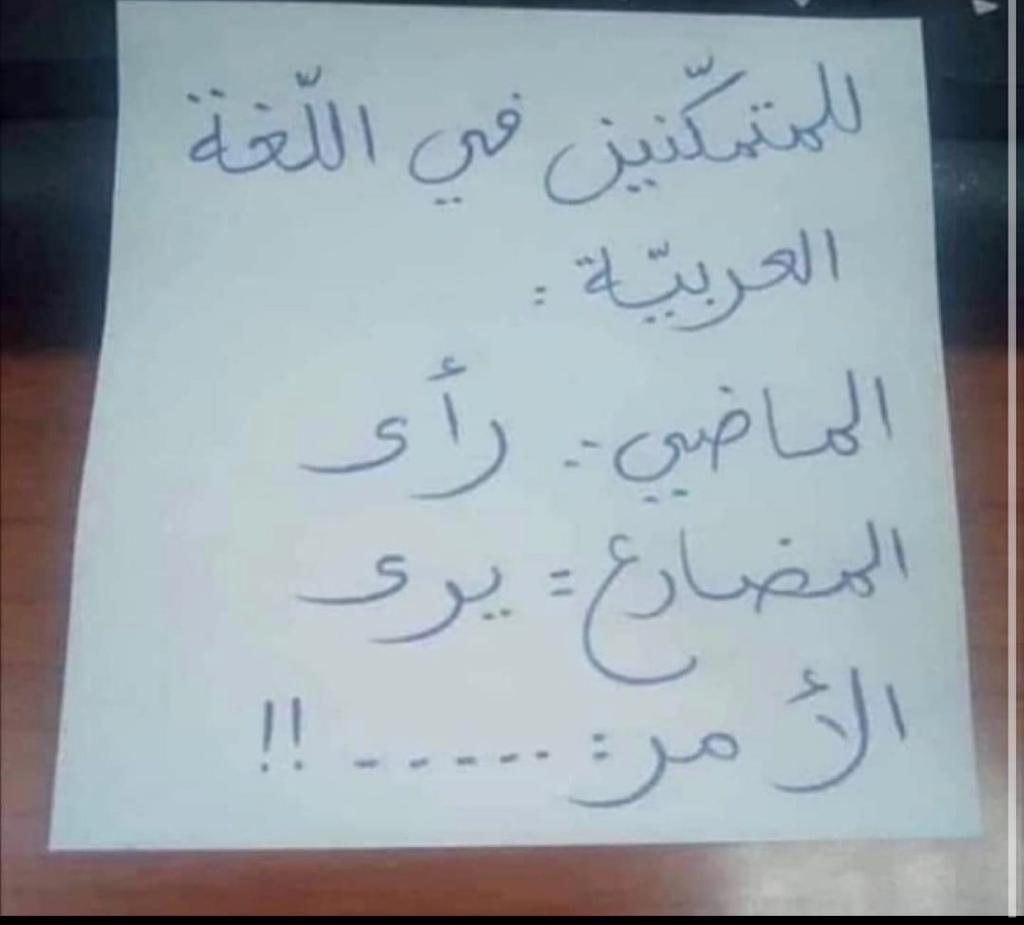 للمتمكّنين في اللّغة
العربيّة :
الماضي : رأى
المضارع = يرى
الأمر : ----- !!